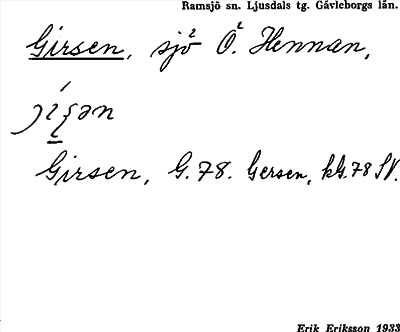 Ramsjö sn. Ljusdals tg. Gävleborgs län.
Girsen, sjö Ö. Hennan,
Girsen, G. 78. Gersen, kG. 78 SV.
Erik Eriksson 1933